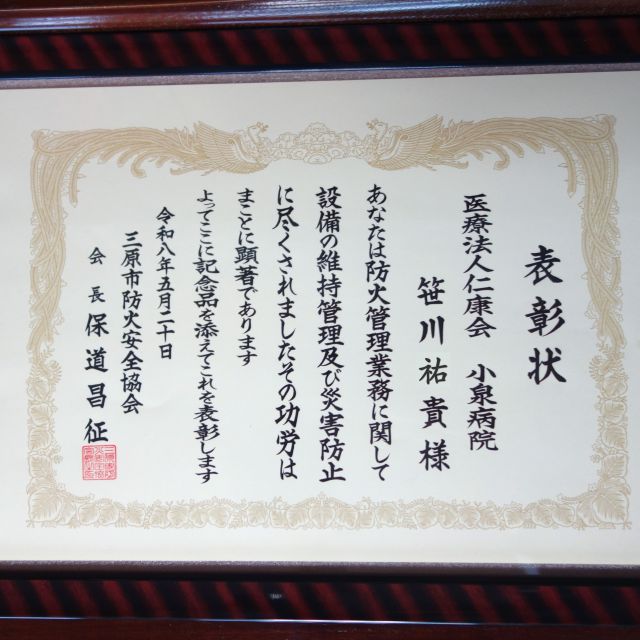 表彰状
医療法人仁康会 小泉病院
笹川祐貴様
あなたは防火管理業務に関して
設備の維持管理及び災害防止
に尽くされましたその功労は
まことに顕著であります
よってここに記念品を添えてこれを表彰します
令和八年五月二十日
三原市防火安全協会
会長 保道昌征